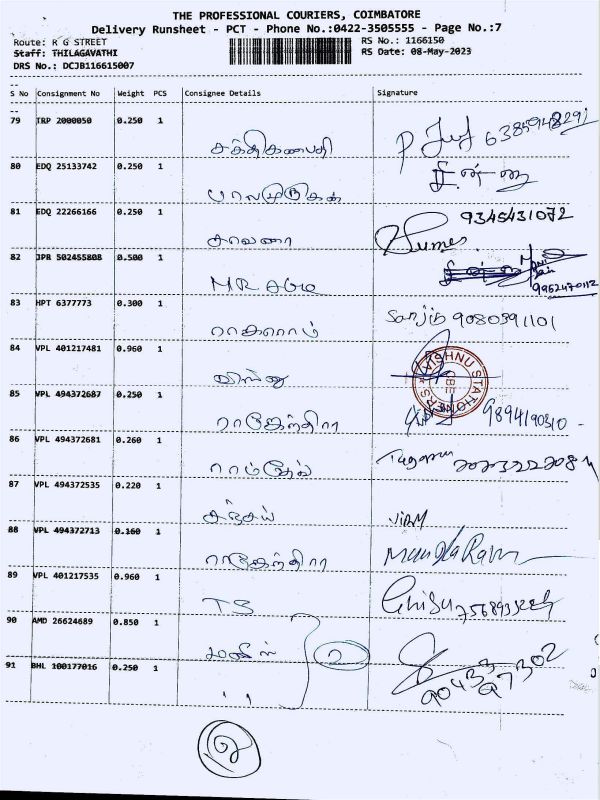 THE PROFESSIONAL COURIERS, COIMBATORE
Delivery Runsheet - PCT - Phone No.:0422-3505555 - Page No.:7
Route: R G STREET
Staff: THILAGAVATHI
DRS No.: DCJB116615007
RS No.: 1166150
RS Date: 08-May-2023
S No Consignment No Weight PCS Consignee Details Signature
79 TRP 2000050 0.250 1
சக்திகணபதி
80 EDQ 25133742 0.250 1
பாலமுருகன்
81 EDQ 22266166 0.250 1 9345431072
சரவணா
82 JPR 502455808 0.500 1
MR
9962470112
83 HPT 6377773 0.300 1
Sanjib 9080391101
84 VPL 401217481 0.960 1
விஷ்ணு
VISHNU STATIONERS
CBE
85 VPL 494372687 0.250 1
ராஜேந்திரா
86 VPL 494372681 0.260 1
ராம்தேவ்
87 VPL 494372535 0.220 1
சஞ்சய்
88 VPL 494372713 0.160 1
ராஜேந்திரா
89 VPL 401217535 0.960 1
TS
90 AMD 26624689 0.850 1
2
91 BHL 100177016 0.250 1
9043397302